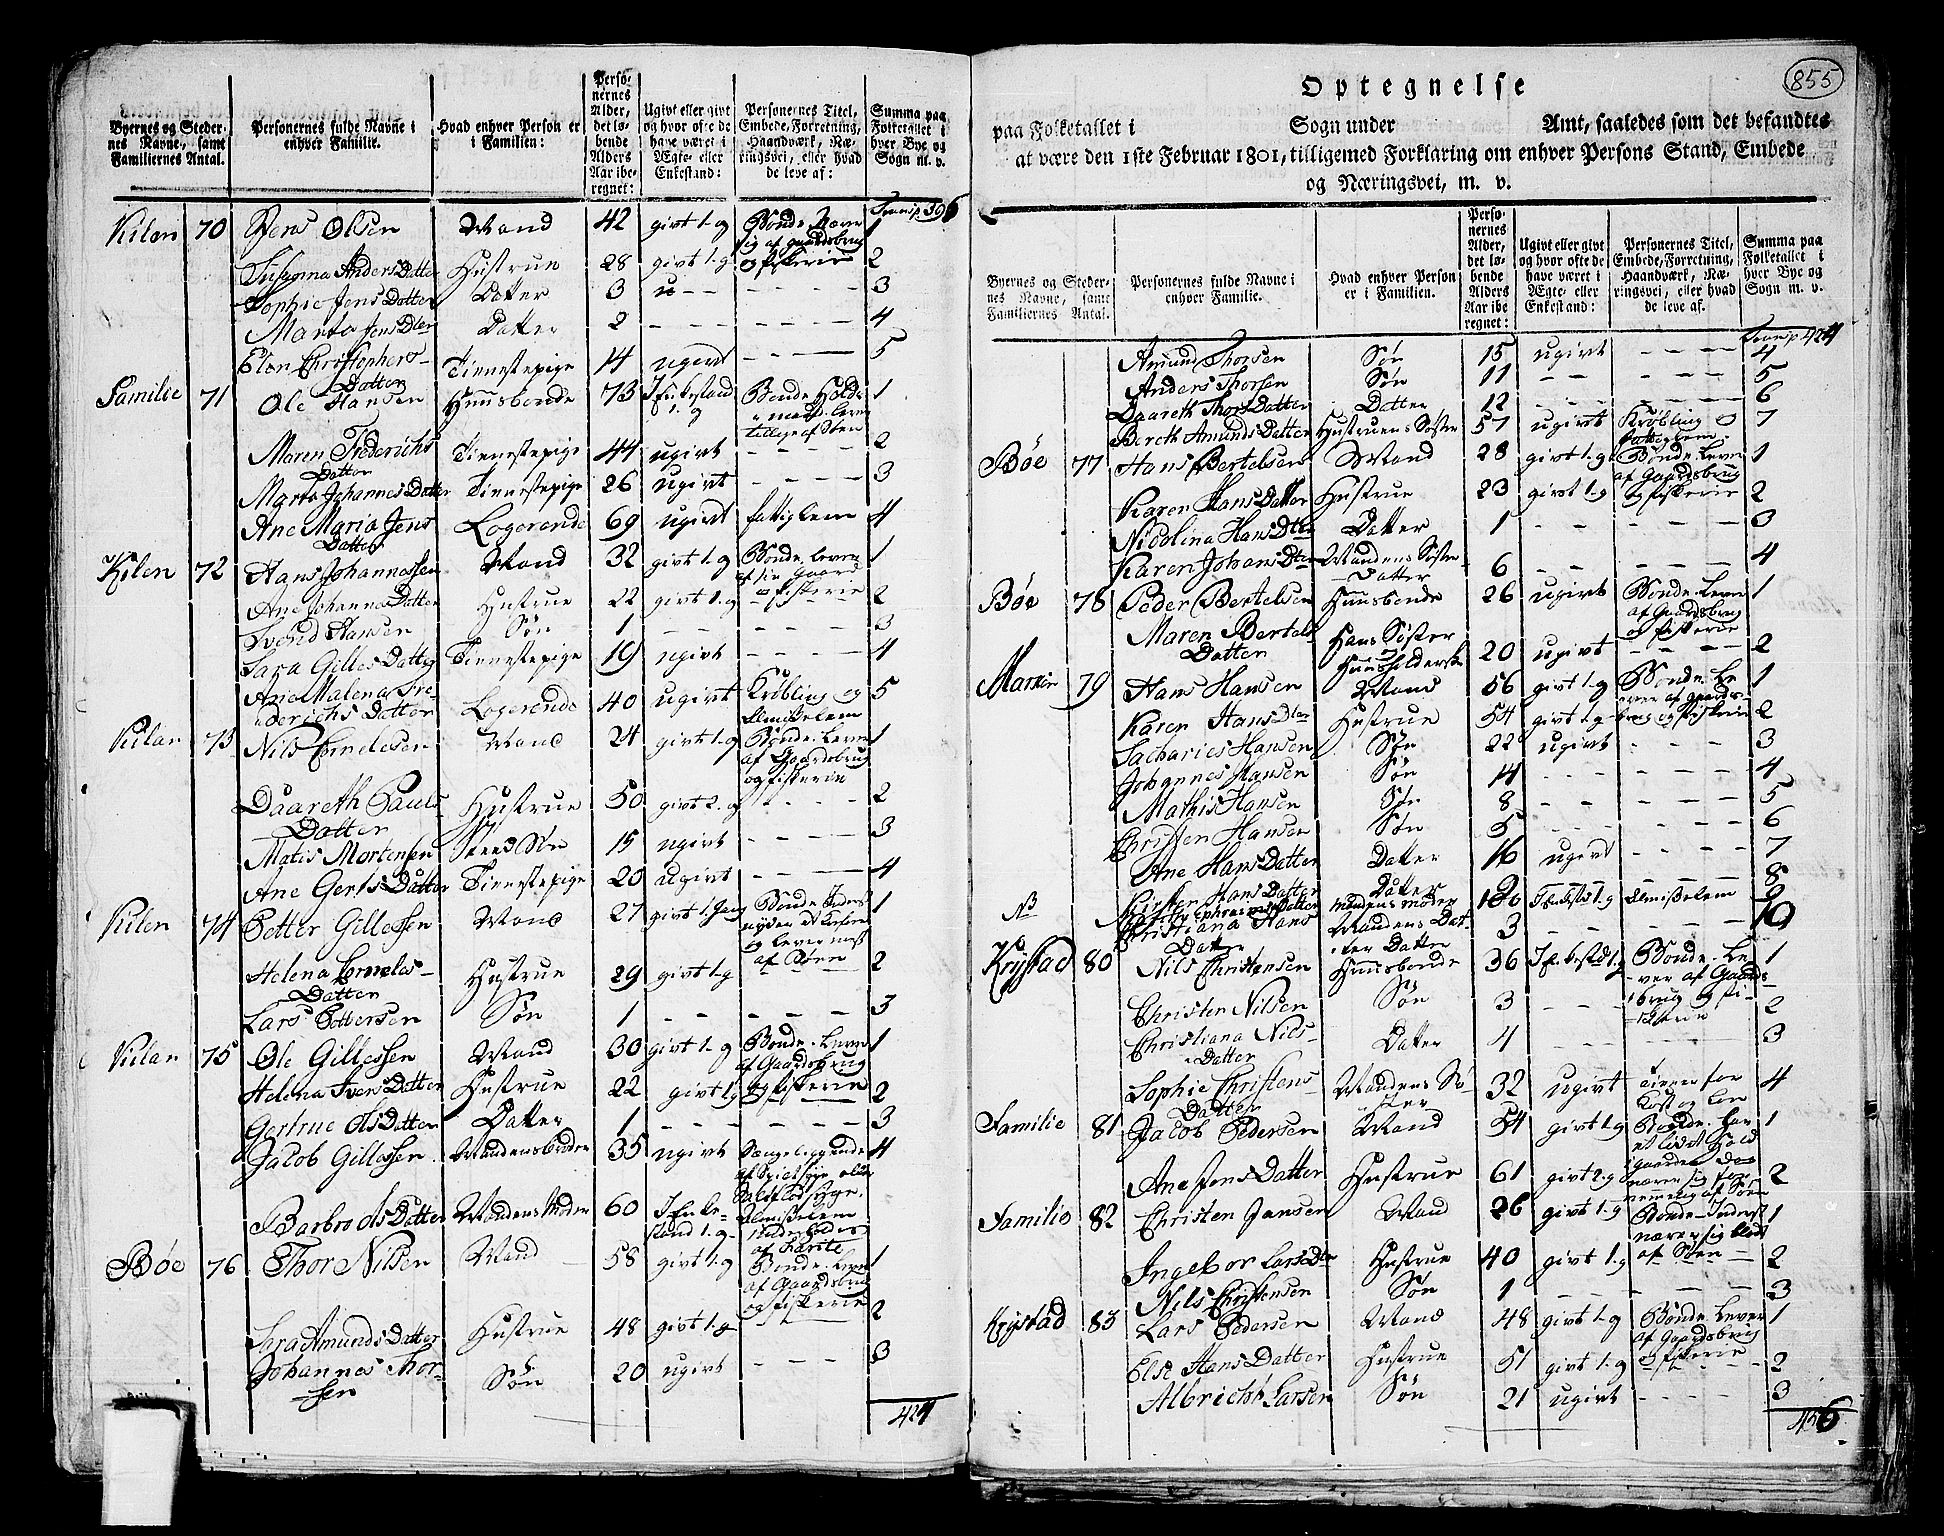 855
Byernes og Steder-
nes Navne, samt
Familiernes Antal.
Personernes fulde Navne i
enhver Familie.
Hvad enhver Person er
i Familien:
Perso-
nernes
Alder,
det lø-
bende
Alders
Aar ibe-
regnet:
Ugivt eller givt
og hvor ofte de
have været i
Ægte- eller
Enkestand:
Personernes Titel,
Embede, Forretning,
Haandværk, Næ-
ringsvei, eller hvad
de leve af:
Summa paa
Folketallet i
hver Bye og
Sogn m. v.
Transp 396
Kilen 70 Jens Olsen Mand 42 givt 1. g Bonde Nærer 1
sig af gaardsbrug
Susanna Anders Datter Hustrue 28 givt 1. g o fiskerie 2
Sophie Jens Datter Datter 3 u - - 3
Marta Jens Dter Datter 2 - - - - 4
Elen Christophers-
Datter Tienestepige 14 ugivt - - - 5
Familie 71 Ole Hansen Huusbonde 73 I Enkestand Bonde Holds 1
1. g mand lever
tillige af Søen
Maren Frederichs
Datter Tienestepige 44 ugivt - - - - 2
Marta Johannes Datter Tienestepige 26 ugivt - - - - 3
Ane Maria Jens
Datter Logerende 69 ugivt fattiglem 4
Kilen 72 Hans Johannessen Mand 32 givt 1. g Bonde lever 1
af sin Gaard
Ane Johannes Datter Hustrue 22 givt 1. g o fiskerie 2
Svend Hansen Søn 1 - - - 3
Sara Gilles Datter Tienestepige 19 ugivt - - - - 4
Ane Malena Fre-
derichs Datter Logerende 40 ugivt Krøbling og 5
Almißelem
Kilen 73 Nils Cornelesen Mand 24 givt 1. g Bonde. Lever 1
af Gaardsbrug
og fiskerie
Daareth Pauls
Datter Hustrue 50 givt 2. g - - - 2
Matis Mortensen Sted Søn 15 ugivt - - - - 3
Ane Gerts Datter Tienestepige 20 ugivt - - - - 4
Kilen 74 Petter Gillessen Mand 27 givt 1. Gang Bonde Inders 1
og lever mest
af Søen
Helena Corneles-
Datter Hustrue 29 givt 1. g 2
Lars Pettersen Søn 1 - - - - - 3
Kilen 75 Ole Gillessen Mand 30 givt 1. g Bonde. Lever 1
af Gaardsbrug
Helena Ivers Datter Hustrue 22 givt 1. g og fiskerie 2
Gertrue Ols Datter Datter 1 - - - - - 3
Jacob Gillessen Mandens broder 35 ugivt Sængeliggende 4
Barbro Ols Datter Mandens Moder 60 I Enke- Almißelem
stand 1. g
Bøe 76 Thor Nilsen Mand 58 givt 1. g Bonde. Lever 1
af Gaardsbrug
og fiskerie
Sara Amunds Datter Hustrue 48 givt 1. g 2
Johannes Thor-
sen Søn 20 ugivt - - - 3
424
Optegnelse
paa Folketallet i Sogn under Amt, saaledes som det befandtes
at være den 1ste Februar 1801, tilligemed Forklaring om enhver Persons Stand, Embede
og Næringsvei, m. v.
Byernes og Steder-
nes Navne, samt
Familiernes Antal.
Personernes fulde Navne i
enhver Familie.
Hvad enhver Person
er i Familien.
Perso-
nernes
Alder,
det lø-
bende
Alders
Aar ibe-
regnet:
Ugivt eller givt
og hvor ofte de
have været i
Ægte- eller
Enkestand:
Personernes Titel,
Embede, Forretning,
Haandværk, Næ-
ringsvei, eller hvad
de leve af.
Summa paa
Folketallet i
hver Bye og
Sogn m. v.
Transp 424
Amund Thorsen Søn 15 ugivt - - - - 4
Anders Thorsen Søn 11 - - - - - 5
Daareth Thors Datter Datter 12 - - - - - 6
Bereth Amunds Datter Hustruens Søster 57 ugivt Krøbling o 7
fattiglem
Bøe 77 Hans Bertelsen Mand 28 givt 1. g Bonde Lever 1
af Gaardsbrug
Karen Hans Datter Hustrue 23 givt 1. g og fiskerie 2
Nicolina Hans Dter Datter 1 - - - - - 3
Karen Johans Dter Mandens Søster
Datter 6 - - - - 4
Bøe 78 Peder Bertelsen Huusbonde 26 ugivt Bonde. Lever 1
af Gaardsbrug
og fiskerie
Maren Bertels
Datter Hans Søster
Huusholderske 20 ugivt - - - 2
79 Hans Hansen Mand 56 givt 1. g Bonde. Le- 1
ver af Gaards-
Karen Hans Dter Hustrue 54 givt 1. g brug og fiskerie 2
Sacharies Hansen Søn 22 ugivt - - - 3
Johannes Hansen Søn 14 - - - - 4
Mathis Hansen Søn 8 - - - - - 5
Christen Hansen Søn 5 - - - - - 6
Ane Hans Datter Datter 16 ugivt - - - - 7
Kirsten Hans Datter Datter 8
NB Ephraims Datter mandens moder I Enkestd 1. g Almißelem
Christiana Hans
Datter Mandens Dat-
ter Datter 3 - - - 10
Krystad 80 Nils Christensen Huusbonde 36 I Enkestd 1. g Bonde. Le- 1
ver af Gaards-
brug og fi-
skerie
Christen Nilsen Søn 3 - - 2
Christiana Nils-
Datter Datter 4 - - - - 3
Sophie Christens
Datter Mandens Sø-
ster 32 ugivt tiener for 4
kost og løn
Familie 81 Jacob Pedersen Mand 54 givt 1. g Bonde. Har 1
et lidet Hold
Ane Jens Datter Hustrue 61 givt 2. g 2
nærer sig for-
nemmelig af Søen
Familie 82 Christen Jansen Mand 26 givt 1. g Bonde. Inderst 1
nærer sig blot
Ingebor Lars Dter Hustrue 40 givt 1. g af Søen - - 2
Nils Christensen Søn 1 - - - - - 3
Krystad 83 Lars Pedersen Mand 48 givt 1. g Bonde. Lever 1
af Gaardsbrug
Else Hans Datter Hustrue 51 givt 1. g o fiskerie 2
Albricht Larsen Søn 21 ugivt - - - - 3
456